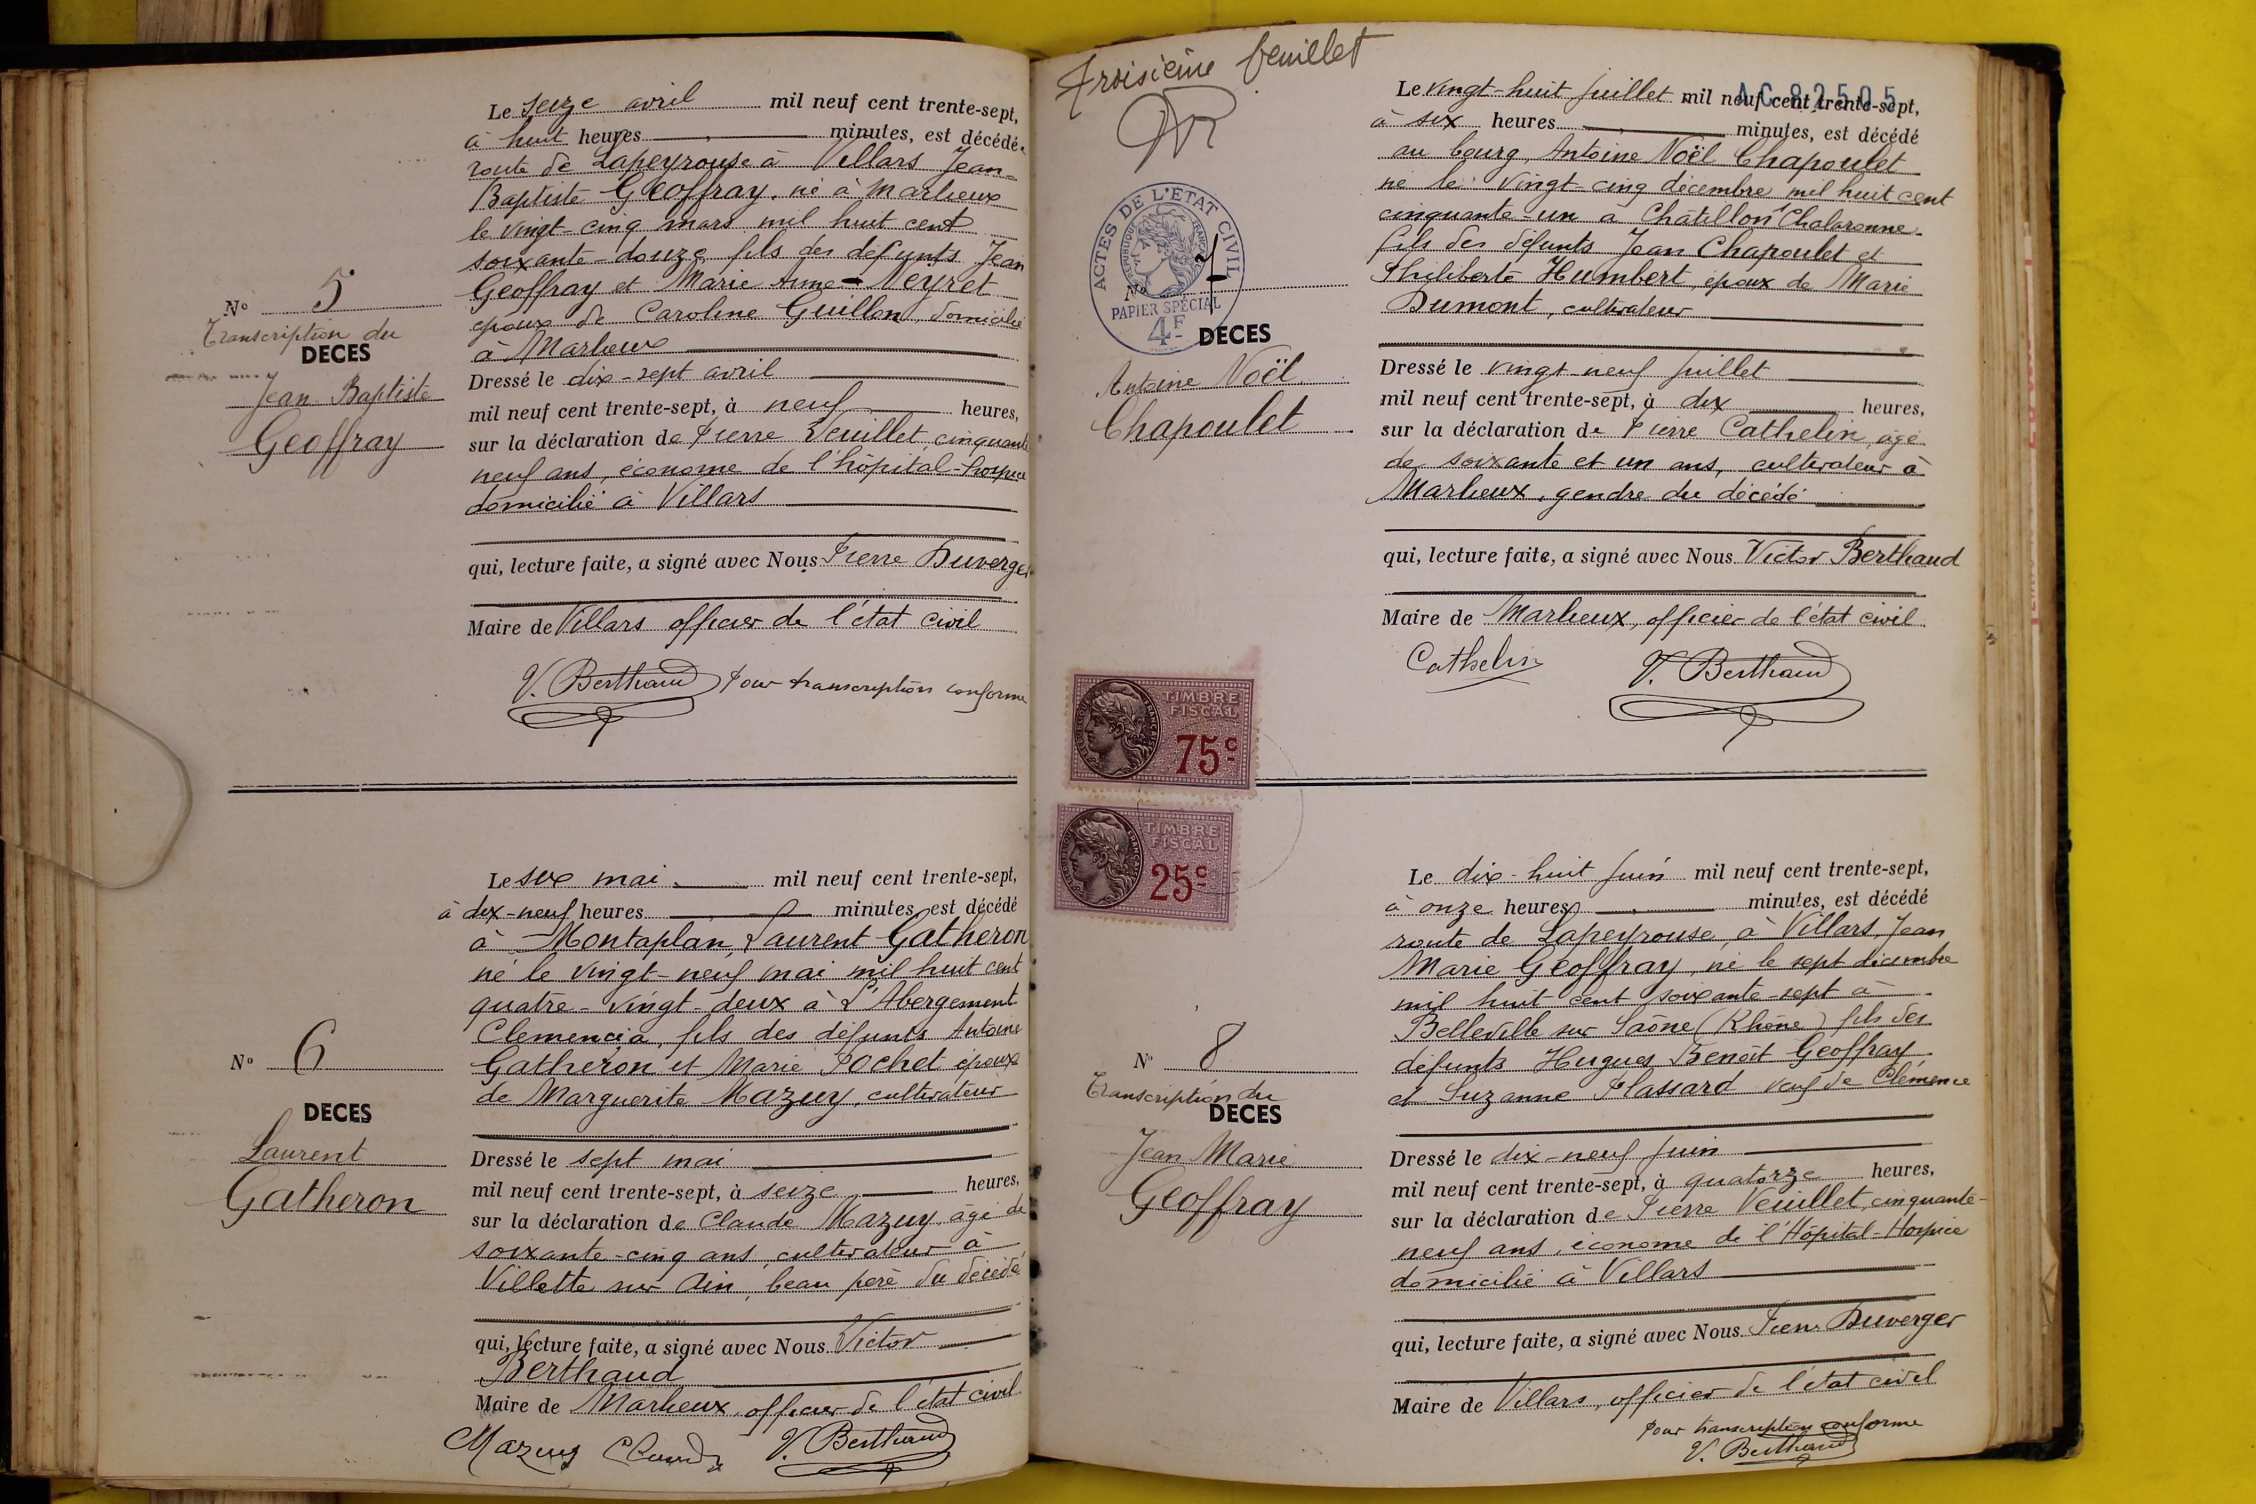 Le seize avril mil neuf cent trente-sept,
à huit heures minutes, est décédé
route de Lapeyrouse à Villars Jean-
Baptiste Geoffray, né à Marlieux
le vingt-cinq mars mil huit cent
soixante-douze fils des défunts Jean
Geoffray et Marie Aime Neyret
époux de Caroline Guillon, domicilié
à Marlieux
N° 5
Transcription du
DECES
Jean Baptiste
Geoffray
Dressé le dix-sept avril
mil neuf cent trente-sept, à neuf heures,
sur la déclaration de Pierre Veuillet cinquante
neuf ans, économe de l'hôpital-hospice
domicilié à Villars
qui, lecture faite, a signé avec Nous Pierre Duverger
Maire de Villars officier de l'état civil
V. Berthaud Pour transcription conforme
Le six mai mil neuf cent trente-sept,
à dix-neuf heures minutes, est décédé
à Montaplan, Laurent Gatheron
né le vingt-neuf mai mil huit cent
quatre-vingt-deux à L'Abergement
Clemencia, fils des défunts Antoine
Gatheron et Marie Pochet époux
de Marguerite Mazuy, cultivateur
N° 6
DECES
Laurent
Gatheron
Dressé le sept mai
mil neuf cent trente-sept, à seize heures,
sur la déclaration de Claude Mazuy âgé de
soixante-cinq ans, cultivateur à
Villette sur Ain, beau père du décédé
qui, lecture faite, a signé avec Nous Victor
Berthaud
Maire de Marlieux, officier de l'état civil
Mazuy Claude V. Berthaud
Troisième feuillet
AC 82505
Le vingt-huit juillet mil neuf cent trente-sept,
à six heures minutes, est décédé
au bourg, Antoine Noël Chapoulet
né le vingt-cinq décembre mil huit cent
cinquante-un à Châtillon s/ Chalaronne
fils des défunts Jean Chapoulet et
Philiberte Humbert, époux de Marie
Dumont, cultivateur
ACTES DE L'ETAT CIVIL
REPUBLIQUE FRANÇAISE
PAPIER SPÉCIAL
4F
N° 7
DECES
Antoine Noël
Chapoulet
Dressé le vingt-neuf juillet
mil neuf cent trente-sept, à dix heures,
sur la déclaration de Pierre Cathelin, âgé
de soixante et un ans, cultivateur à
Marlieux, gendre du décédé
qui, lecture faite, a signé avec Nous Victor Berthaud
Maire de Marlieux, officier de l'état civil
Cathelin V. Berthaud
TIMBRE
FISCAL
75c
TIMBRE
FISCAL
25c
Le dix-huit juin mil neuf cent trente-sept,
à onze heures minutes, est décédé
route de Lapeyrouse, à Villars, Jean
Marie Geoffray, né le sept décembre
mil huit cent soixante-sept à
Belleville sur Saône (Rhône) fils des
défunts Hugues Benoît Geoffray
et Suzanne Plassard veuf de Clémence
N° 8
Transcription du
DECES
Jean Marie
Geoffray
Dressé le dix-neuf juin
mil neuf cent trente-sept, à quatorze heures,
sur la déclaration de Pierre Veuillet, cinquante-
neuf ans, économe de l'Hôpital-Hospice
domicilié à Villars
qui, lecture faite, a signé avec Nous Pierre Duverger
Maire de Villars, officier de l'état civil
Pour transcription conforme
V. Berthaud